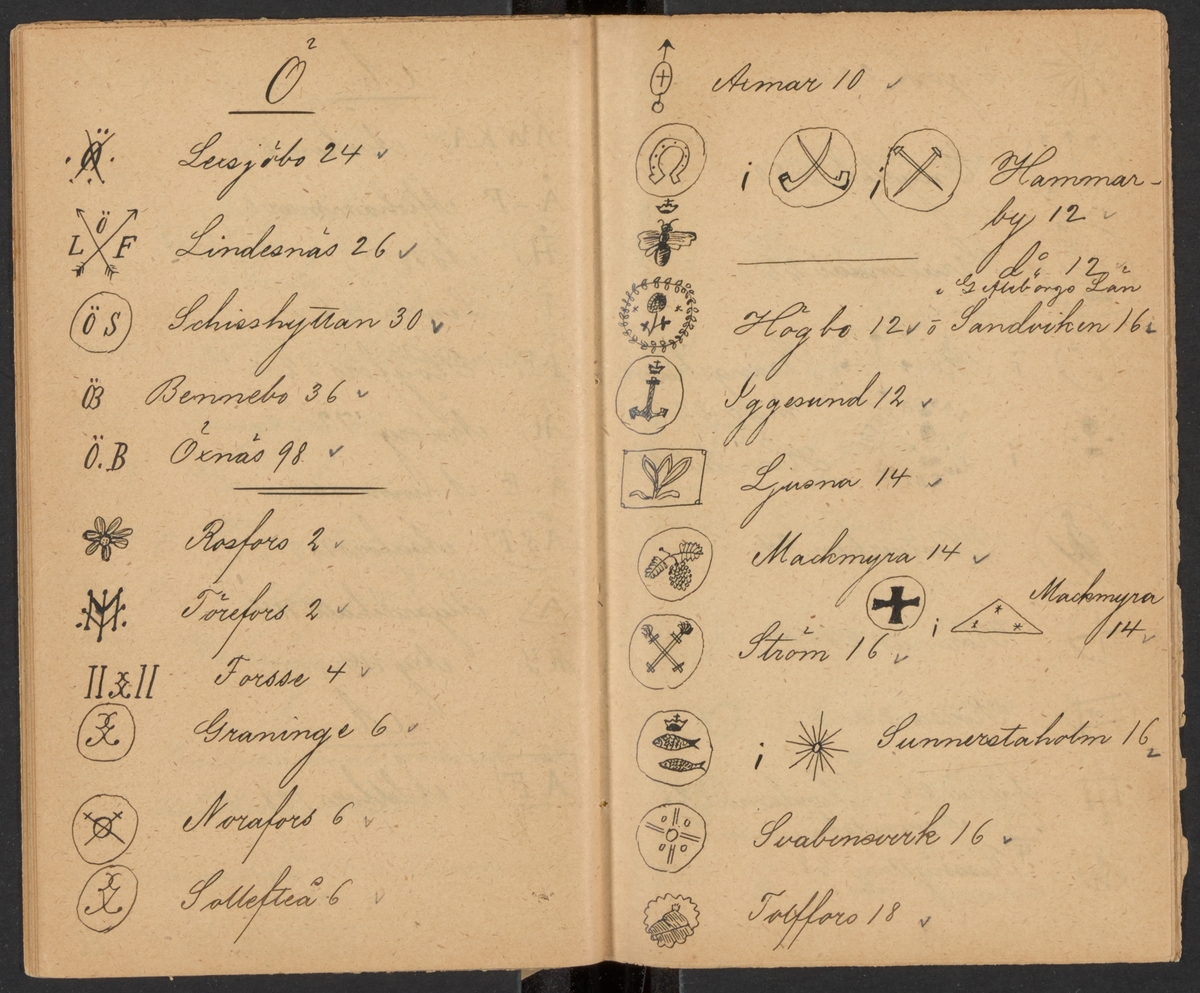 Ö 2
Ö Lersjöbo 24
L Ö F Lindesnäs 26
ÖS Schisshyttan 30
ÖB Bennebo 36
Ö.B Öxnäs 98
Rosfors 2
Törefors 2
Forsse 4
Graninge 6
Norafors 6
Sollefteå 6
Axmar 10
i i Hammar-
by 12
do 12
Gefleborgs Län
Högbo 12 ö Sandviken 16
Iggesund 12
Ljusna 14
Mackmyra 14
i Mackmyra
14
Ström 16
i Sunnerstaholm 16
Svabensverk 16
Tolffors 18